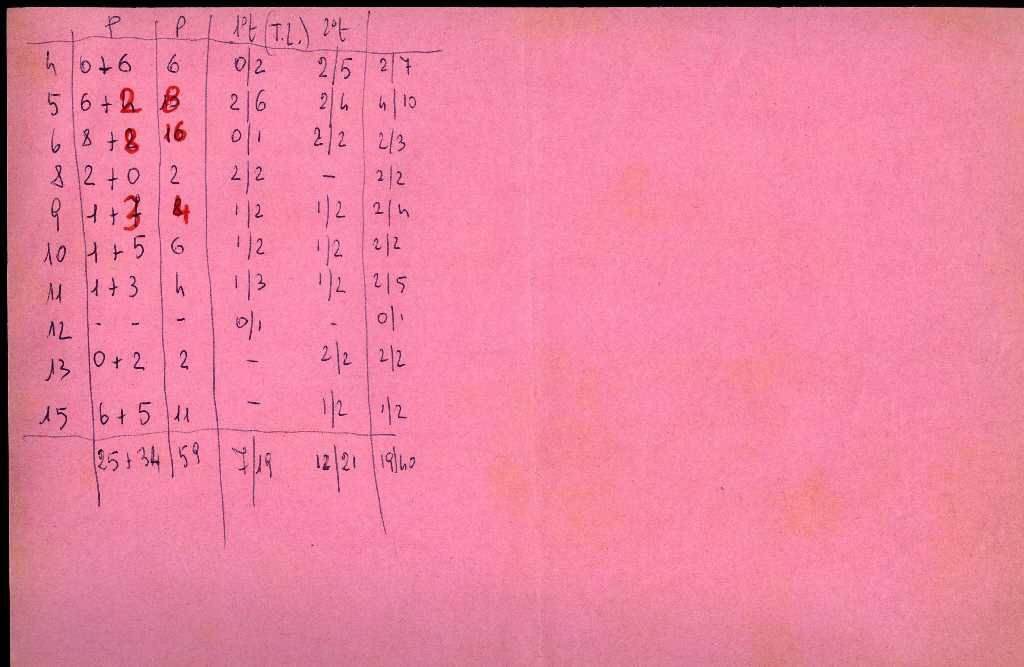 P P 1ºt (T.L.) 2ºt
4 0+6 6 0/2 2/5 2/7
5 6+2 8 2/6 2/4 4/10
6 8+8 16 0/1 2/2 2/3
8 2+0 2 2/2 - 2/2
9 1+3 4 1/2 1/2 2/4
10 1+5 6 1/2 1/2 2/2
11 1+3 4 1/3 1/2 2/5
12 - - - 0/1 - 0/1
13 0+2 2 - 2/2 2/2
15 6+5 11 - 1/2 1/2
25+34 59 7/19 12/21 19/40